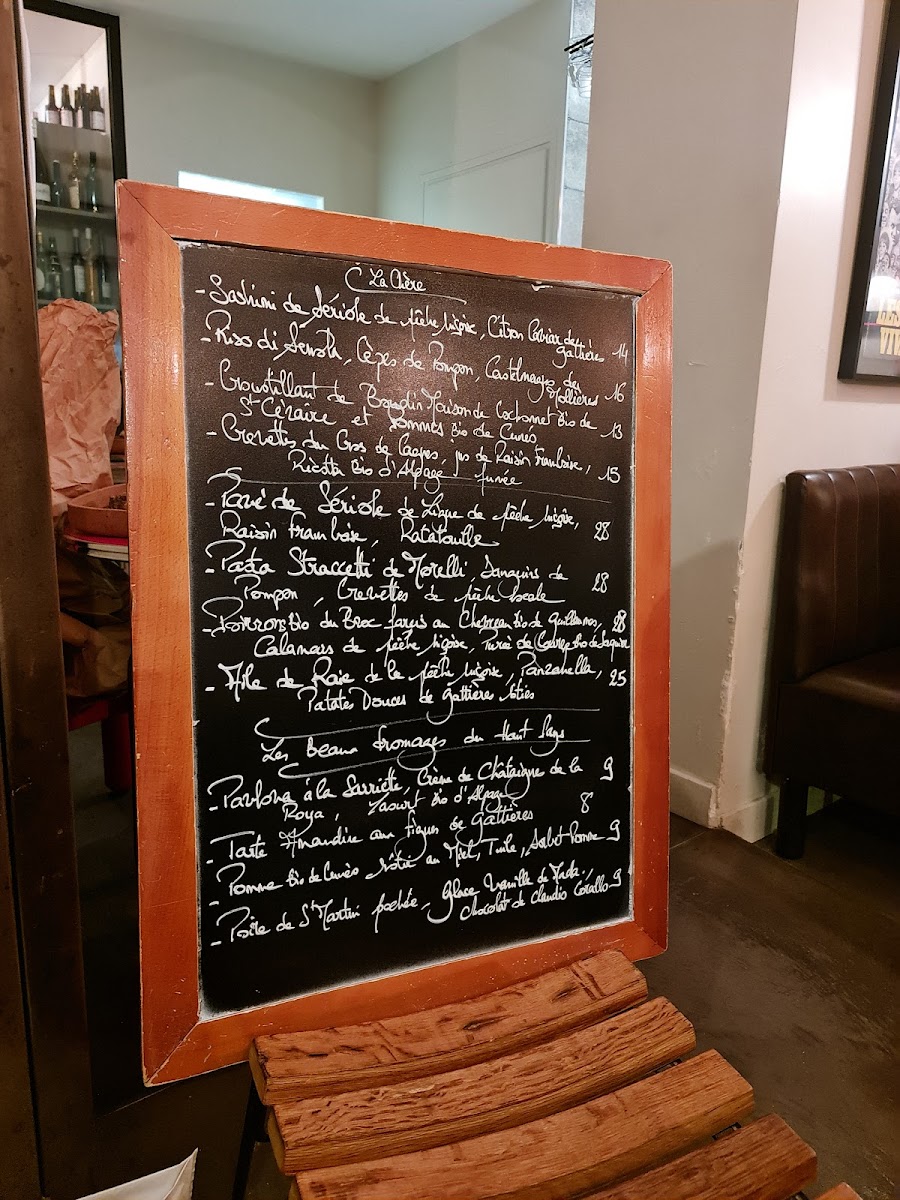 La Chère
- Sashimi de Sériole de Pêche Niçoise, Citron Caviar de
Gattières 14
- Riso di Semola, Cèpes de Pompon, Castelmagno des
Mollières 16
- Croustillant de Boudin Maison de Cochonnet Bio de
St Cézaire et Pommes Bio de Cunes 13
- Crevettes du Cros de Cagnes, jus de Raisin Framboise,
Ricotta Bio d'Alpage fumée 15
- Pavé de Sériole de Ligne de Pêche Niçoise,
Raisin Framboise, Ratatouille 28
- Pasta Straccetti de Morelli, Sanguins de
Pompon, Crevettes de Pêche Locale 28
- Poivrons Bio du Broc farçis au Bio de Guillaumes, 28
Calamars de Pêche Niçoise, Purée de Courge Bio de
- Aile de Raie de la Pêche Niçoise, Panzanella, 25
Patates Douces de Gattières rôties
Les Beaux fromages du Haut Pays
- Pavlova à la Sarriette, Crème de Châtaigne de la 9
Roya, Yaourt Bio d'Alpage
- Tarte Amandine aux figues de Gattières 8
- Pomme Bio de rôtie au Miel, Tuile, Sorbet Pomme 9
- Poire de St Martin pochée, Glace Vanille de
Chocolat de Claudio Corallo 9